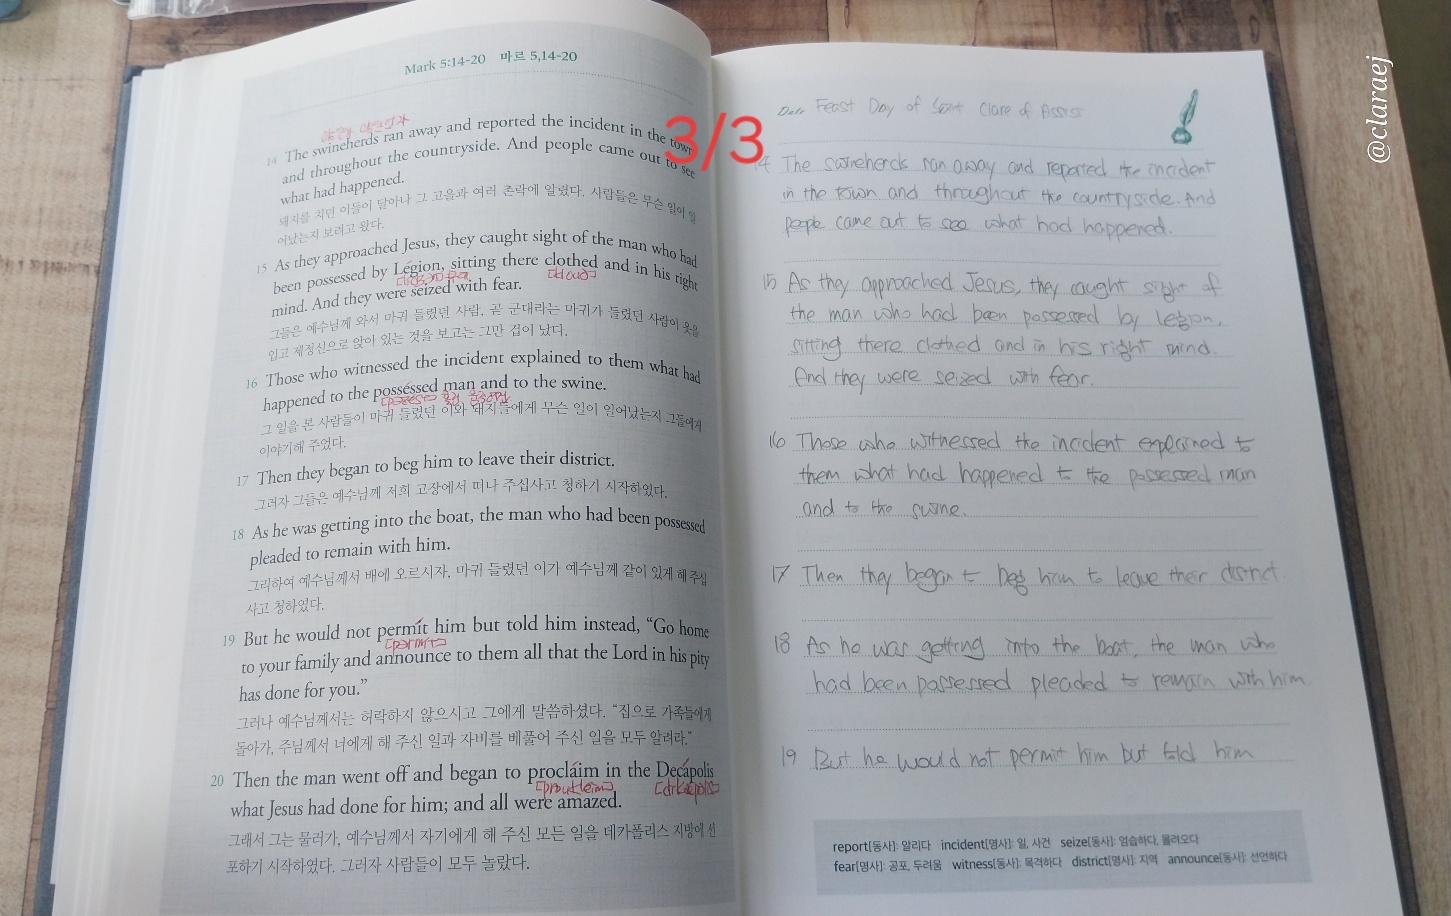 Mark 5:14-20 마르 5,14-20
14 The swineherds ran away and reported the incident in the town
and throughout the countryside. And people came out to see
what had happened.
돼지를 치던 이들이 달아나 그 고을과 여러 촌락에 알렸다. 사람들은 무슨 일이 일
어났는지 보려고 왔다.
15 As they approached Jesus, they caught sight of the man who had
been possessed by Legion, sitting there clothed and in his right
mind. And they were seized with fear.
그들은 예수님께 와서 마귀 들렸던 사람, 곧 군대라는 마귀가 들렸던 사람이 옷을
입고 제정신으로 앉아 있는 것을 보고는 그만 겁이 났다.
16 Those who witnessed the incident explained to them what had
happened to the possessed man and to the swine.
그 일을 본 사람들이 마귀 들렸던 이와 돼지들에게 무슨 일이 일어났는지 그들에게
이야기해 주었다.
17 Then they began to beg him to leave their district.
그러자 그들은 예수님께 저희 고장에서 떠나 주십사고 청하기 시작하였다.
18 As he was getting into the boat, the man who had been possessed
pleaded to remain with him.
그리하여 예수님께서 배에 오르시자, 마귀 들렸던 이가 예수님께 같이 있게 해 주십
사고 청하였다.
19 But he would not permit him but told him instead, “Go home
to your family and announce to them all that the Lord in his pity
has done for you.”
그러나 예수님께서는 허락하지 않으시고 그에게 말씀하셨다. “집으로 가족들에게
돌아가, 주님께서 너에게 해 주신 일과 자비를 베풀어 주신 일을 모두 알려라.”
20 Then the man went off and began to proclaim in the Decapolis
what Jesus had done for him; and all were amazed.
그래서 그는 물러가, 예수님께서 자기에게 해 주신 모든 일을 데카폴리스 지방에 선
포하기 시작하였다. 그러자 사람들이 모두 놀랐다.
3/3
Date Feast Day of Saint Clare of Assisi
14 The swineherds ran away and reported the incident
in the town and throughout the countryside. And
people came out to see what had happened.
15 As they approached Jesus, they caught sight of
the man who had been possessed by legion,
sitting there clothed and in his right mind.
And they were seized with fear.
16 Those who witnessed the incident explained to
them what had happened to the possessed man
and to the swine.
17 Then they began to beg him to leave their district.
18 As he was getting into the boat, the man who
had been possessed pleaded to remain with him.
19 But he would not permit him but told him
report[동사]: 알리다 incident[명사]: 일, 사건 seize[동사]: 엄습하다, 몰려오다
fear[명사]: 공포, 두려움 witness[동사]: 목격하다 district[명사]: 지역 announce[동사]: 선언하다
@claraej